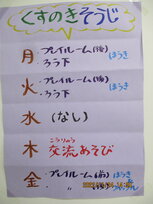 くすのきそうじ
月 ・プレイルーム(後) ほうき
・ろう下
火 ・プレイルーム(後) ほうき
・ろう下
水 (なし)
こうりゅう
木 交流あそび
金 ・プレイルーム(前) ほうき
・ 〃 (後)